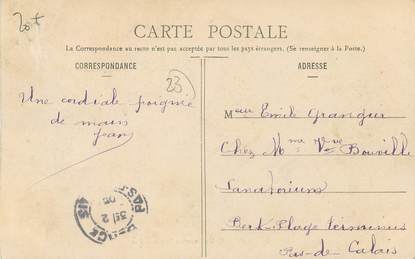 20+
CARTE POSTALE
La Correspondance au recto n'est pas acceptée par tous les pays étrangers. (Se renseigner à la Poste.)
CORRESPONDANCE
ADRESSE
23
Une cordiale poignée
de mains
Jean
Mr Emile
Chez Mme Vve Bouville
Sanatorium
Berk-Plage terminus
Pas-de-Calais
BERCK
PAS